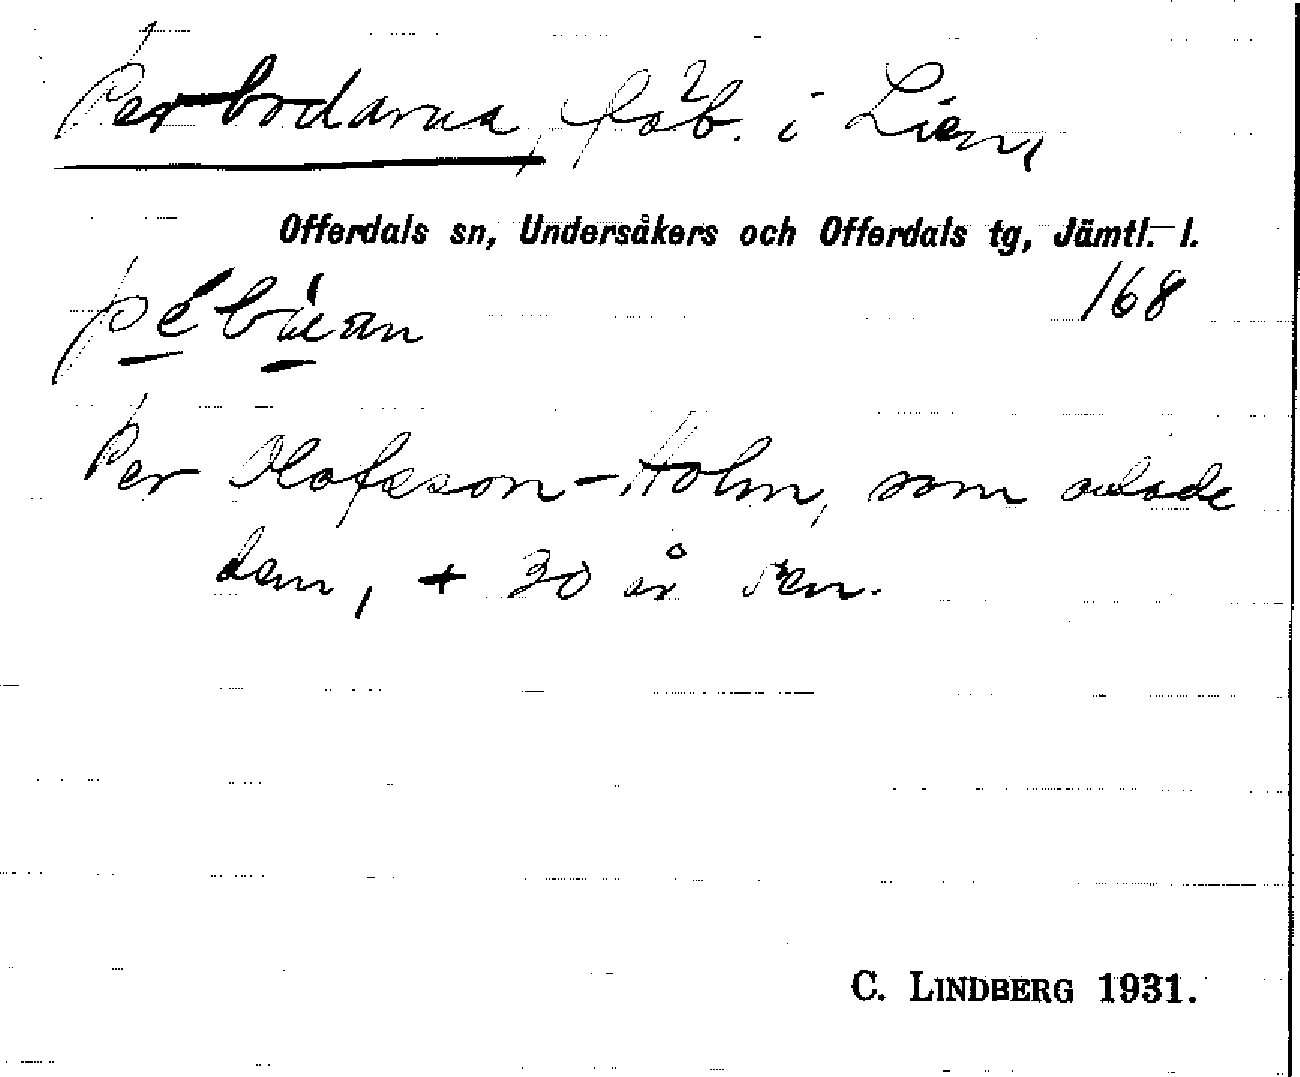 Perbodarna, fäb. i Lien,
Offerdals sn, Undersåkers och Offerdals tg, Jämtl. l.
168
Per Olofsson-Holm, som odlade
dem, + 30 år sen.
C. LINDBERG 1931.